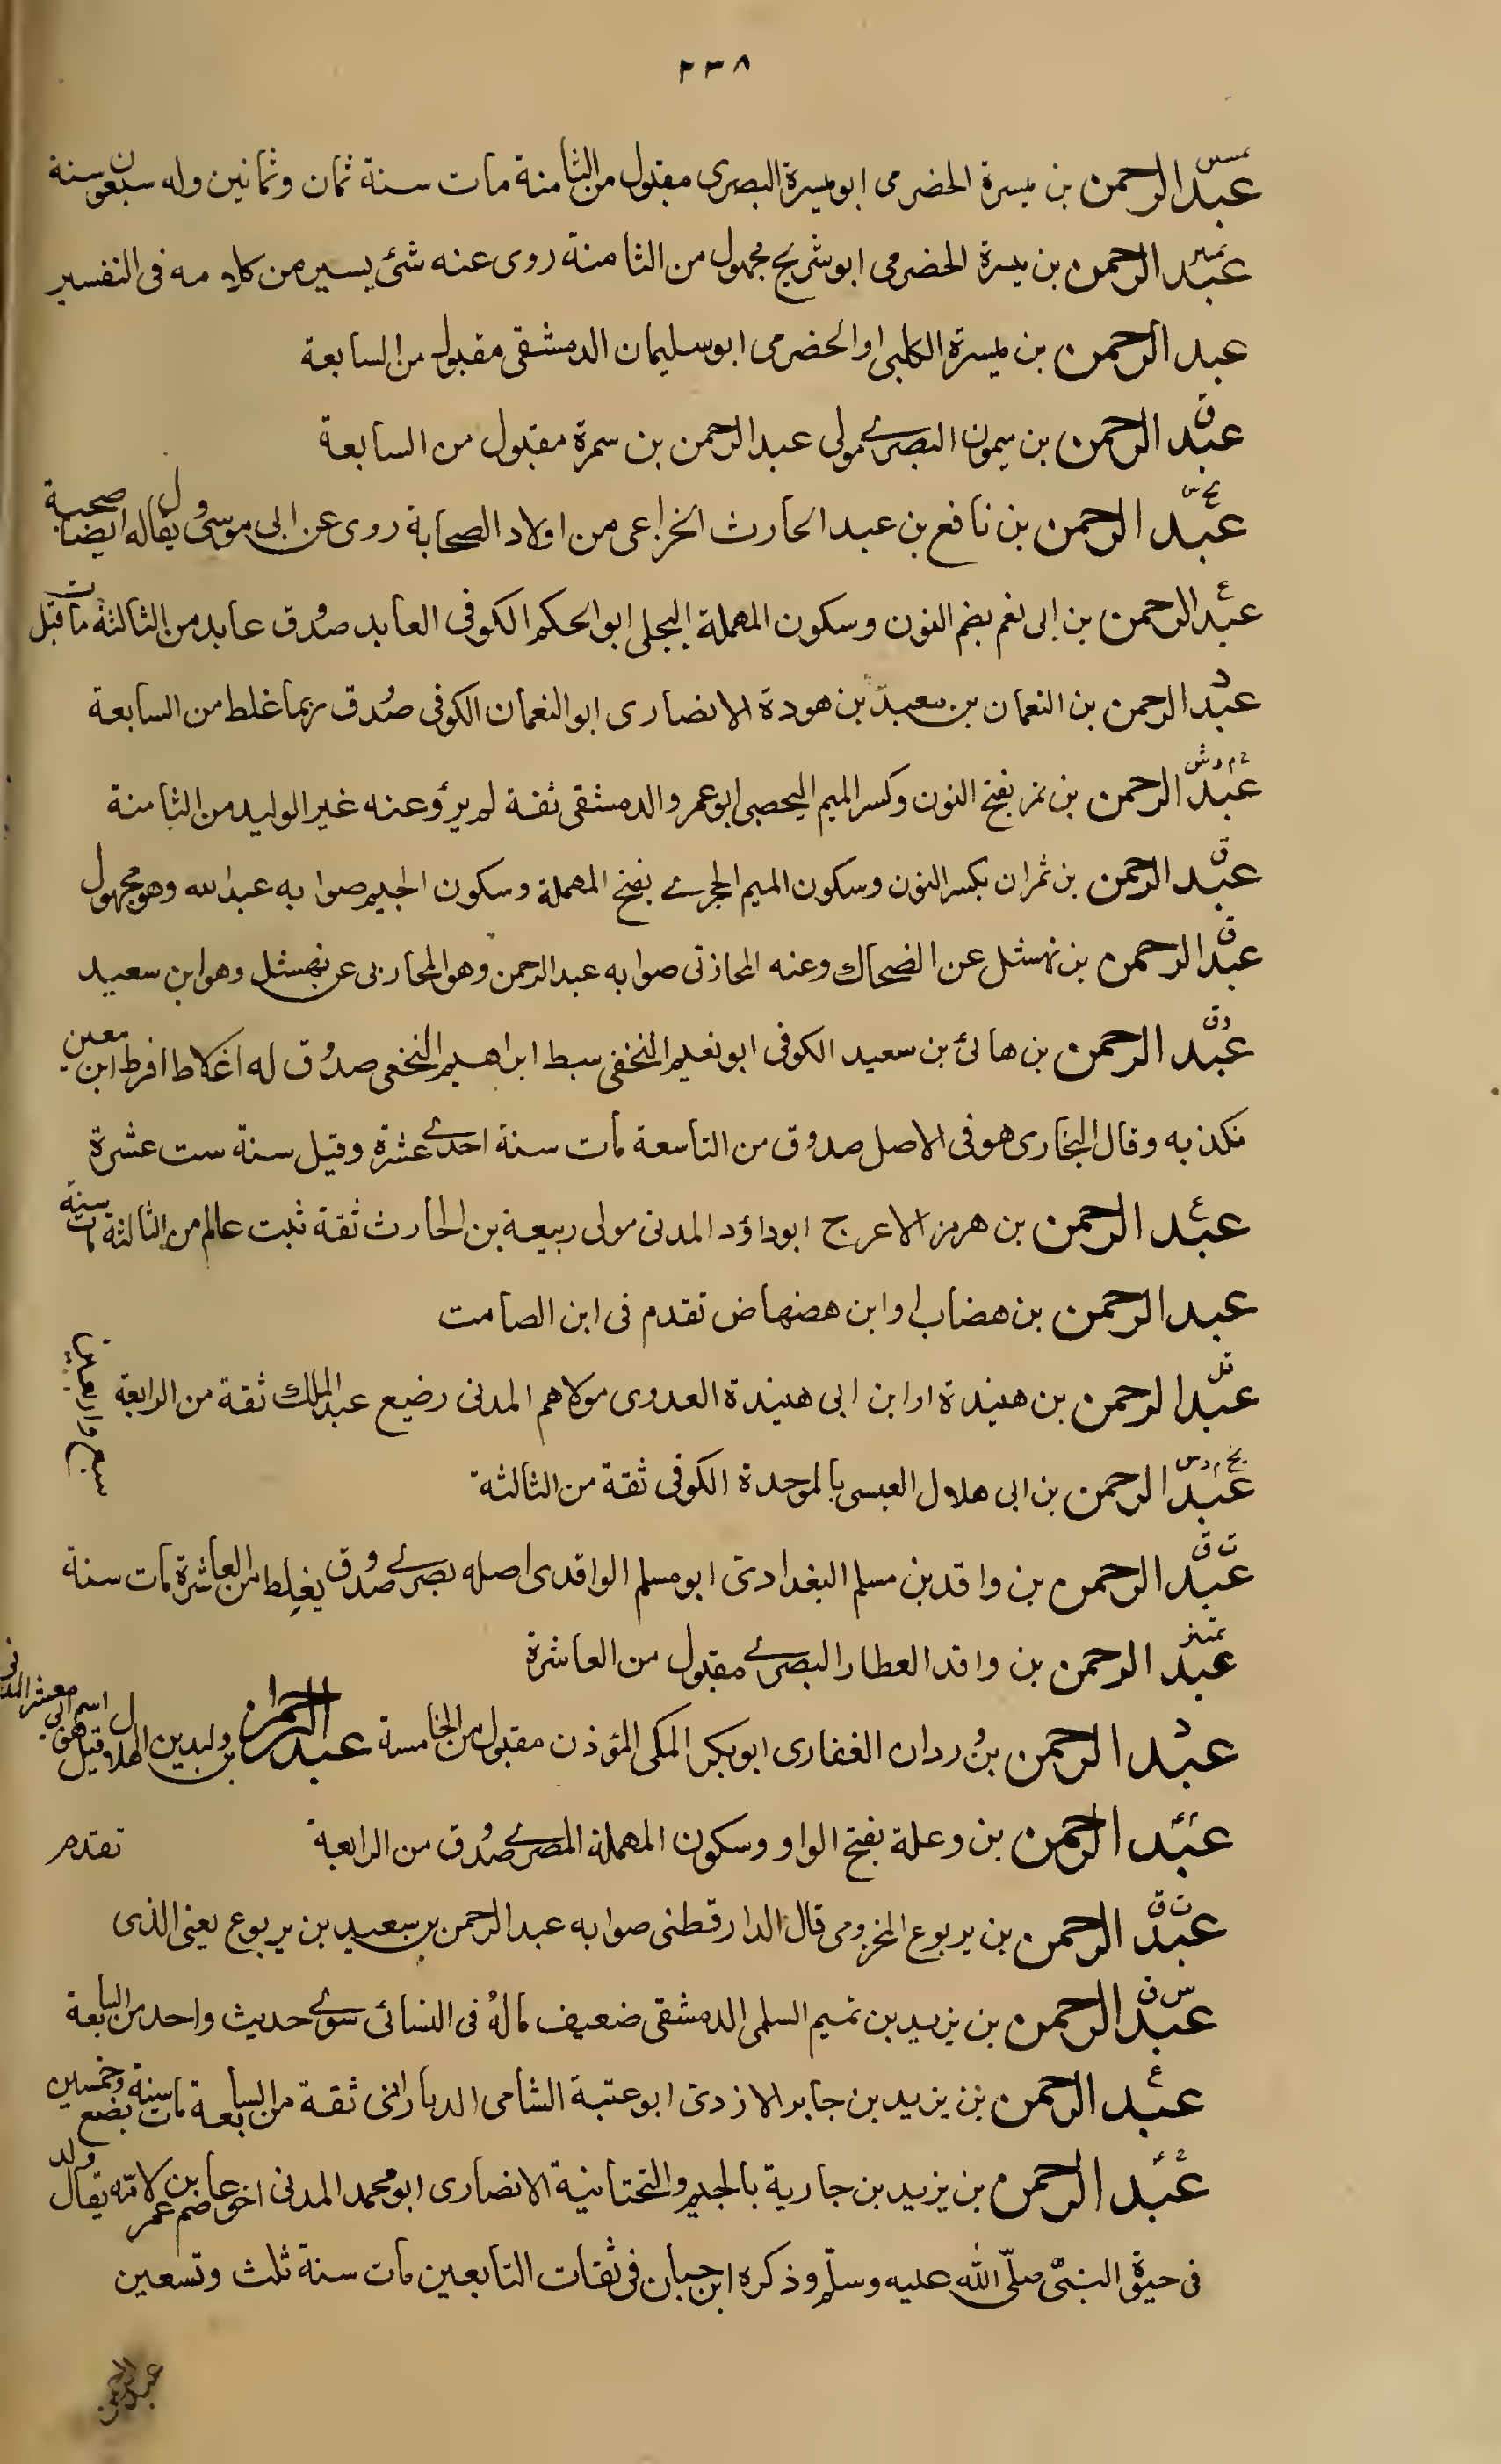 ٢٣٨
عبد الرحمن بن ميسرة الحضرمى ابو ميسرة البصرى مقبول من الثامنة مات سنة ثمان وثمانين وله سبعون سنة
عبد الرحمن بن ميسرة الحضرمى ابو شريح مجهول من الثامنة روى عنه شئ يسير من كلامه فى التفسير
عبد الرحمن بن ميسرة الكلبى او الحضرمى ابو سليمان الدمشقى مقبول من السابعة
ق عبد الرحمن بن ميمون البصرى مولى عبد الرحمن بن سمرة مقبول من السابعة
عبد الرحمن بن نافع بن عبد الحارث الخزاعى من اولاد الصحابة روى عن ابى موسى ويقال له ايضا صحبة
ع عبد الرحمن بن ابى نعم بضم النون وسكون المهملة البجلى ابو الحكم الكوفى العابد صدوق عابد من الثالثة مات قبل
د عبد الرحمن بن النعمان بن سعيد بن هودة الانصارى ابو النعمان الكوفى صدوق ربما غلط من السابعة
عبد الرحمن بن نمر بفتح النون وكسر الميم اليحصبى ابو عمرو الدمشقى ثقة لم يرو عنه غير الوليد من الثامنة
ق عبد الرحمن بن نمران بكسر النون وسكون الميم الحجرى بفتح المهملة وسكون الجيم صوابه عبد الله وهو مجهول
ق عبد الرحمن بن نهشل عن الضحاك وعنه المحاربى صوابه عبد الرحمن وهو المحاربى عن نهشل وهو ابن سعيد
دق عبد الرحمن بن هانئ بن سعيد الكوفى ابو نعيم النخعى سبط ابراهيم النخعى صدوق له اغلاط افرط ابن معين
فكذبه وقال البخارى هو فى الاصل صدوق من التاسعة مات سنة احدى عشرة وقيل سنة ست عشرة
ع عبد الرحمن بن هرمز الاعرج ابو داؤد المدنى مولى ربيعة بن الحارث ثقة ثبت عالم من الثالثة مات سنة
عبد الرحمن بن هضاب او ابن هضهاض تقدم فى ابن الصامت
عبد الرحمن بن هنيدة او ابن ابى هنيدة العدوى مولاهم المدنى رضيع عبد الملك ثقة من الرابعة
بخ م د س عبد الرحمن بن ابى هلال العبسى بالموحدة الكوفى ثقة من الثالثة
ت ق عبد الرحمن بن واقد بن مسلم البغدادى ابو مسلم الواقدى اصله بصرى صدوق يغلط من العاشرة مات سنة
عبد الرحمن بن واقد العطار البصرى مقبول من العاشرة
د عبد الرحمن بن وردان الغفارى ابو بكر المكى المؤذن مقبول من الخامسة عبد الرحمن بن وليد بن الهلال وقيل هو اسم ابى معشر المدنى
عبد الرحمن بن وعلة بفتح الواو وسكون المهملة المصرى صدوق من الرابعة تقدم
ت ق عبد الرحمن بن يربوع المخزومى قال الدارقطنى صوابه عبد الرحمن بن سعيد بن يربوع يعنى الذى
س ق عبد الرحمن بن يزيد بن تميم السلمى الدمشقى ضعيف ماله فى النسائى سوى حديث واحد من السابعة
ع عبد الرحمن بن يزيد بن جابر الازدى ابو عتبة الشامى الدارانى ثقة من السابعة مات سنة بضع وخمسين
عبد الرحمن بن يزيد بن جارية بالجيم والتحتانية الانصارى ابو محمد المدنى اخو عاصم بن عمر لامه يقال ولد
فى حيوة النبى صلى الله عليه وسلم وذكره ابن حبان فى ثقات التابعين مات سنة ثلث وتسعين
عبد الرحمن